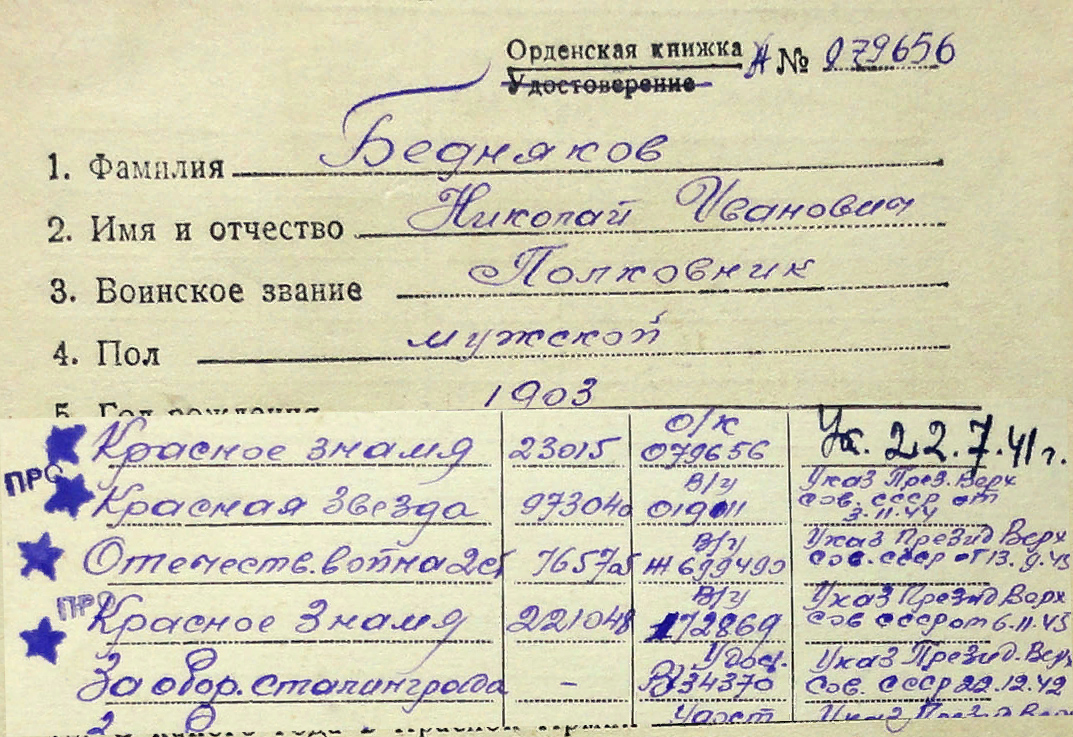 Орденская книжка А № 079656
Удостоверение
1. Фамилия Бедняков
2. Имя и отчество Николай Иванович
3. Воинское звание Полковник
4. Пол мужской
5. Год рождения 1903
Красное знамя 23015 О/к 079656 Ук. 22.7.41 г.
ПРС
Красная Звезда 973040 В/у 019011 Указ През. Верх Сов. СССР от 3.11.44
Отечеств. война 2 ст 76575 В/у Ж 699490 Указ Презид Верх Сов. СССР от 13.9.43
Красное Знамя 221048 В/у 172869 Указ Презид Верх Сов СССР от 6.11.45
За обор. Сталинграда - Удос. В 34370 Указ Презид. Верх Сов. СССР 22.12.42